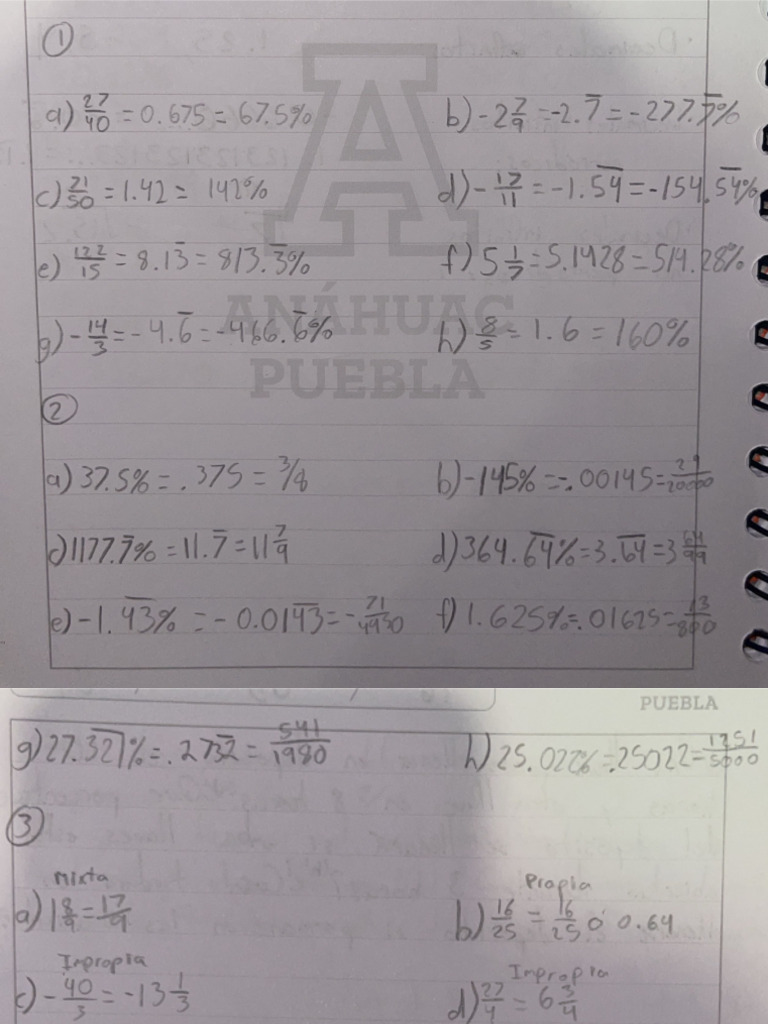 ①
a) 27/40 = 0.675 = 67.5% b) -2 7/9 = -2.7̅ = -277.7̅%
c) 21/50 = 1.42 = 142% d) -17/11 = -1.5̅4̅ = -154.5̅4̅%
e) 122/15 = 8.13̅ = 813.3̅% f) 5 1/7 = 5.1428 = 514.28%
g) -14/3 = -4.6̅ = -466.6̅% h) 8/5 = 1.6 = 160%
ANÁHUAC
PUEBLA
②
a) 37.5% = .375 = 3/8 b) -145% = -.00145 = 29/20000
c) 1177.7̅% = 11.7̅ = 11 7/9 d) 364.6̅4̅% = 3.6̅4̅ = 3 64/99
e) -1.4̅3̅% = -0.014̅3̅ = -71/4950 f) 1.625% = .01625 = 13/800
PUEBLA
g) 27.3̅2̅1̅% = .273̅2̅ = 541/1980 h) 25.022% = .25022 = 1251/5000
③
Mixta Propia
a) 1 8/9 = 17/9 b) 16/25 = 16/25 ó 0.64
Impropia Impropia
c) -40/3 = -13 1/3 d) 27/4 = 6 3/4